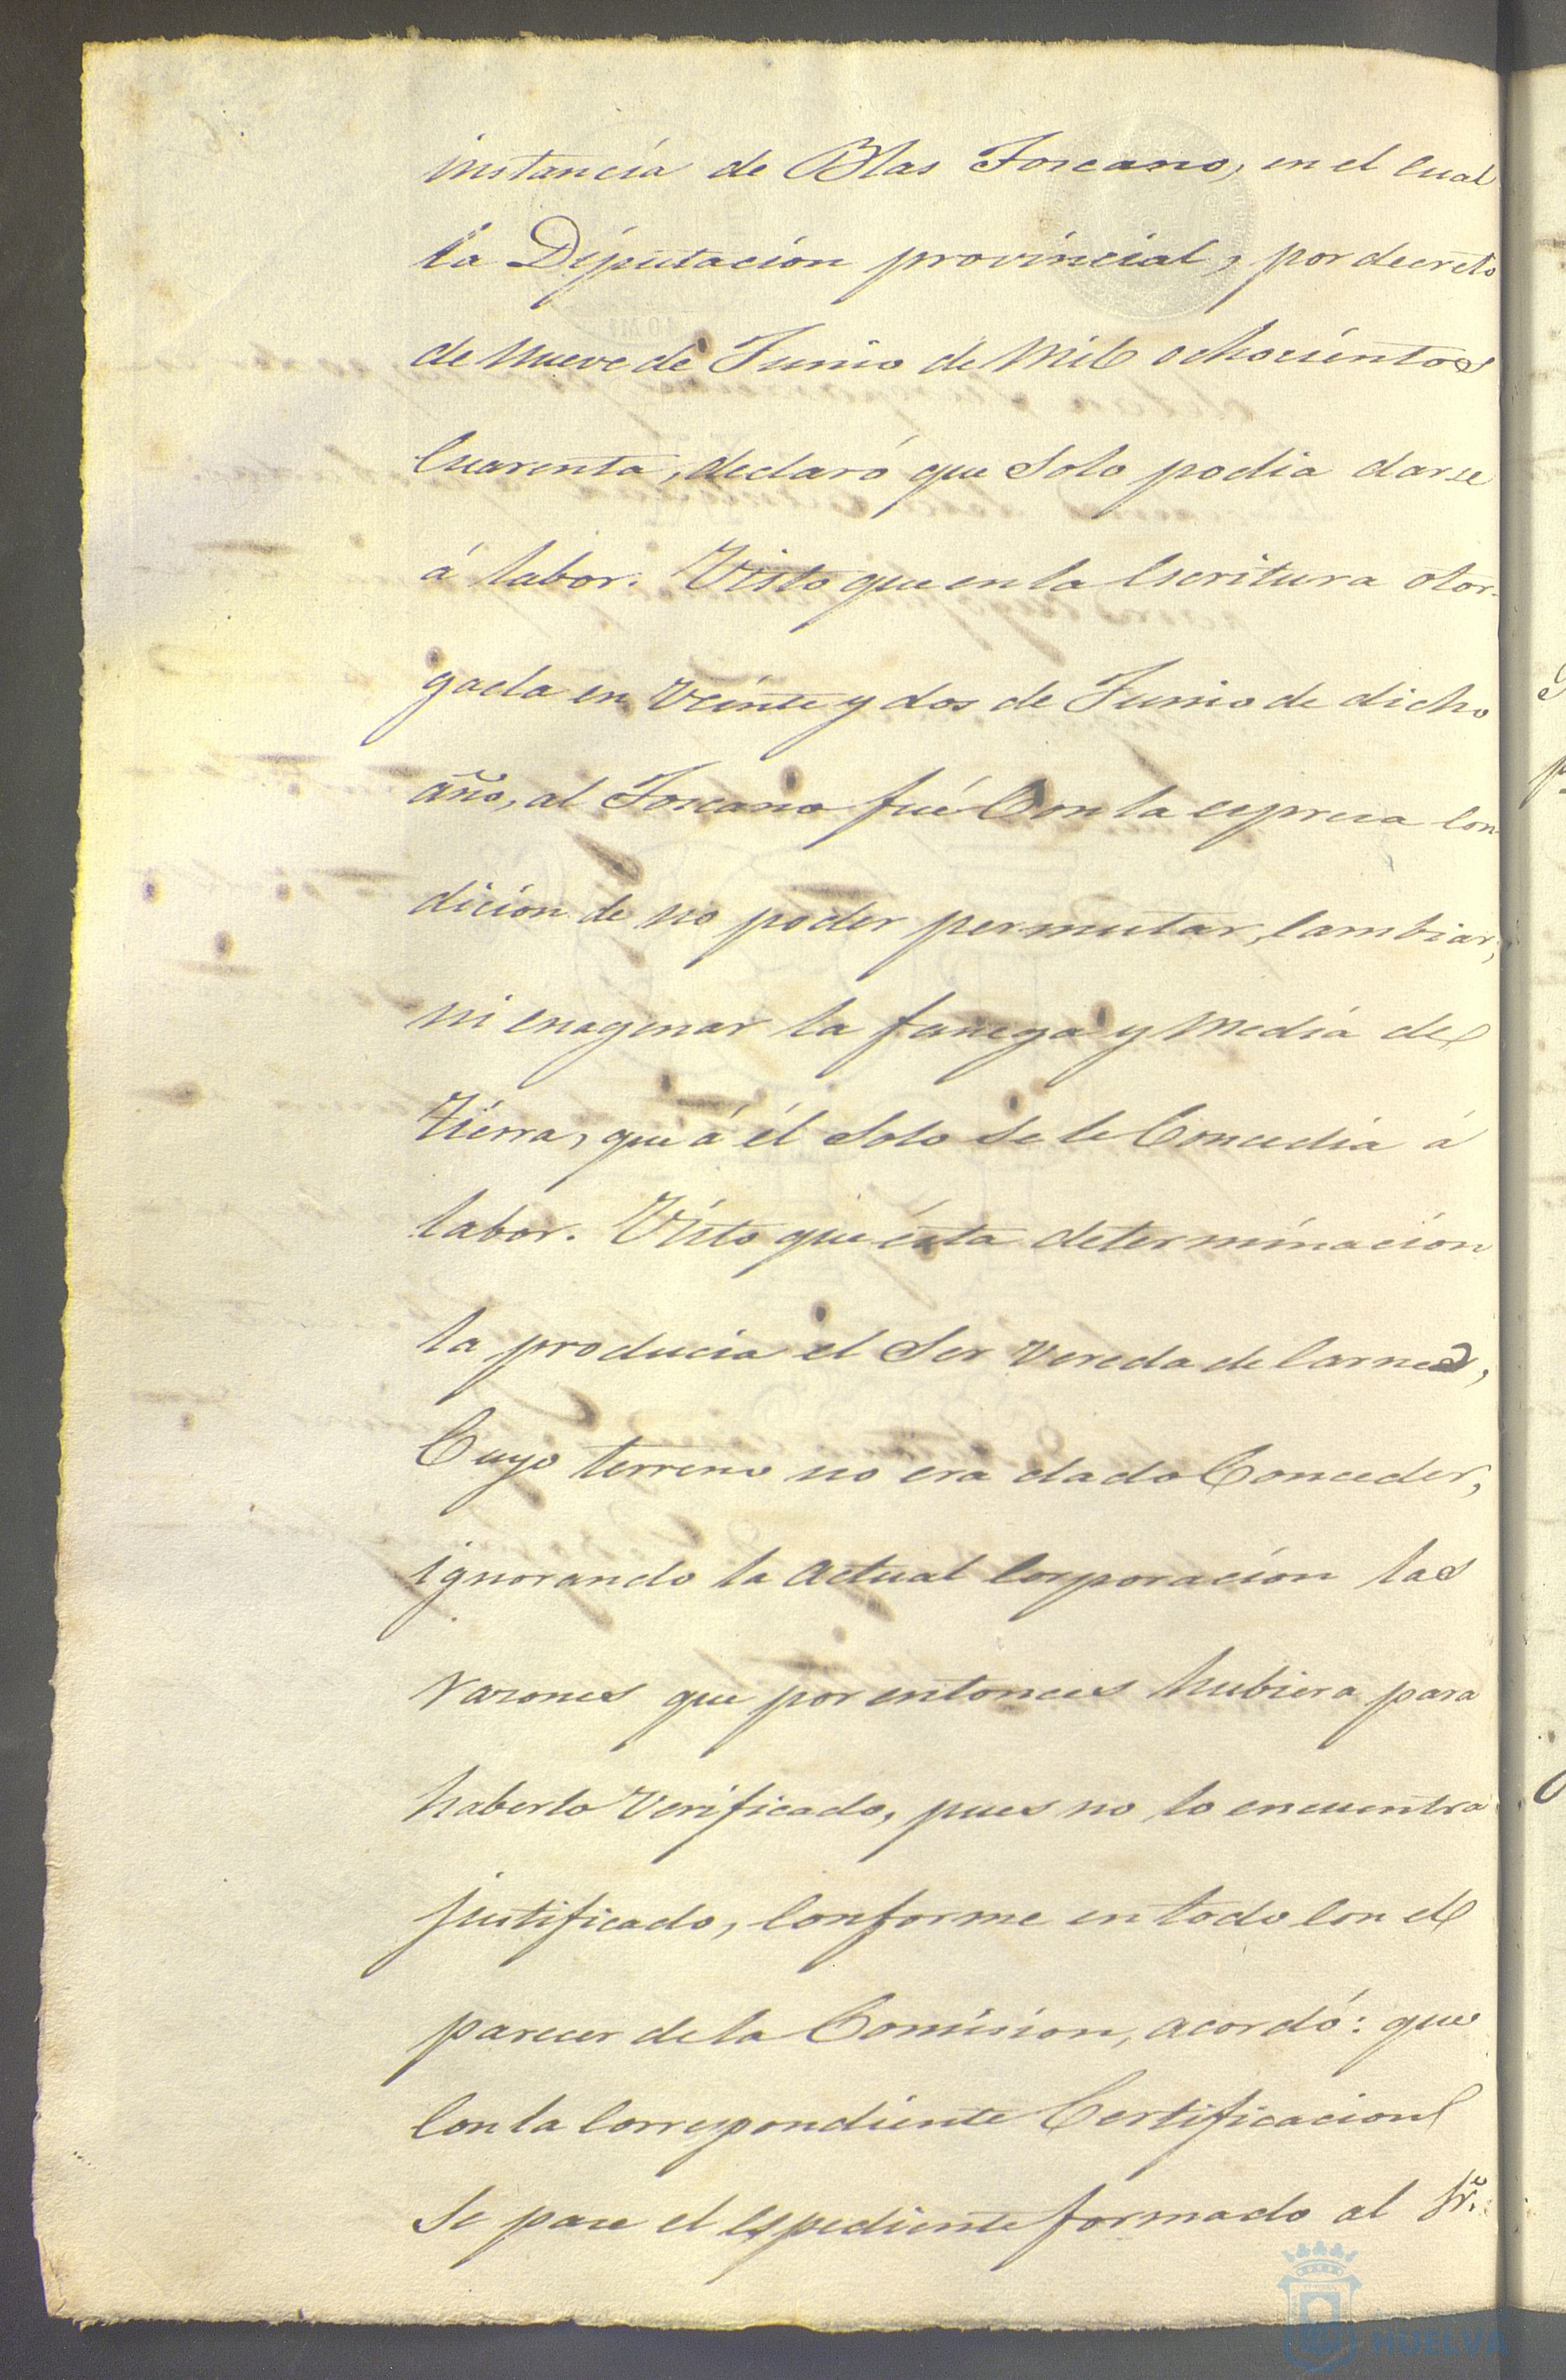 instancia de Blas Toscano, en el cual
la Diputacion provincial, por decreto
de nueve de Junio de mil ochocientos
cuarenta, declaró que solo podia darse
á labor. Visto que en la escritura otor-
gada en veinte y dos de Junio de dicho
año, al Toscano fué con la espresa con
dicion de no poder permutar, cambiar,
ni enagenar la fanega y media de
tierra, que á él solo se le concedia á
labor. Visto que ésta determinacion
la producia el ser vereda de carnes,
cuyo terreno no era dado conceder,
ignorando la actual corporacion las
razones que por entonces hubiera para
haberlo verificado, pues no lo encuentra
justificado, conforme en todo con el
parecer de la Comision, acordó: que
con la correspondiente certificacion
se pase el espediente formado al Sr.
HUELVA